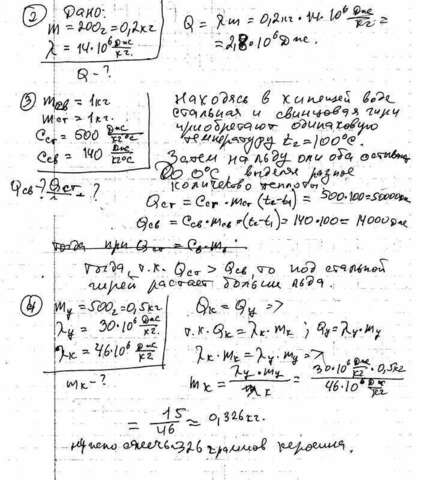 ② Дано:
m = 200г = 0,2кг
λ = 14·10⁶ Дж/кг.
Q - ?
Q = λm = 0,2кг · 14·10⁶ Дж/кг =
= 2,8·10⁶ Дж.
③ mсв = 1кг
mст = 1кг.
Cст = 500 Дж/кг°С
Cсв = 140 Дж/кг°С
Qсв - ? Qст - ?
Находясь в кипящей воде
стальная и свинцовая гири
приобретают одинаковую
температуру t₂ = 100°С.
Затем на льду они оба остывают
до 0°С выделяя разное
количество теплоты
Qст = Cст · mст (t₂-t₁) = 500·100 = 50000Дж
Qсв = Cсв · mсв · (t₂-t₁) = 140·100 = 14000Дж
тогда при Qст = Cв·mв
Тогда, т.к. Qст > Qсв, то под стальной
гирей растает больше льда.
④ my = 500г = 0,5кг
λy = 30·10⁶ Дж/кг.
λк = 46·10⁶ Дж/кг
mк - ?
Qк = Qy =>
т.к. Qк = λк·mк ; Qy = λy·my
λк·mк = λy·my =>
mк = λy·my / λк = 30·10⁶ Дж/кг · 0,5кг / 46·10⁶ Дж/кг
= 15/46 ≈ 0,326кг.
нужно сжечь 326 граммов керосина.